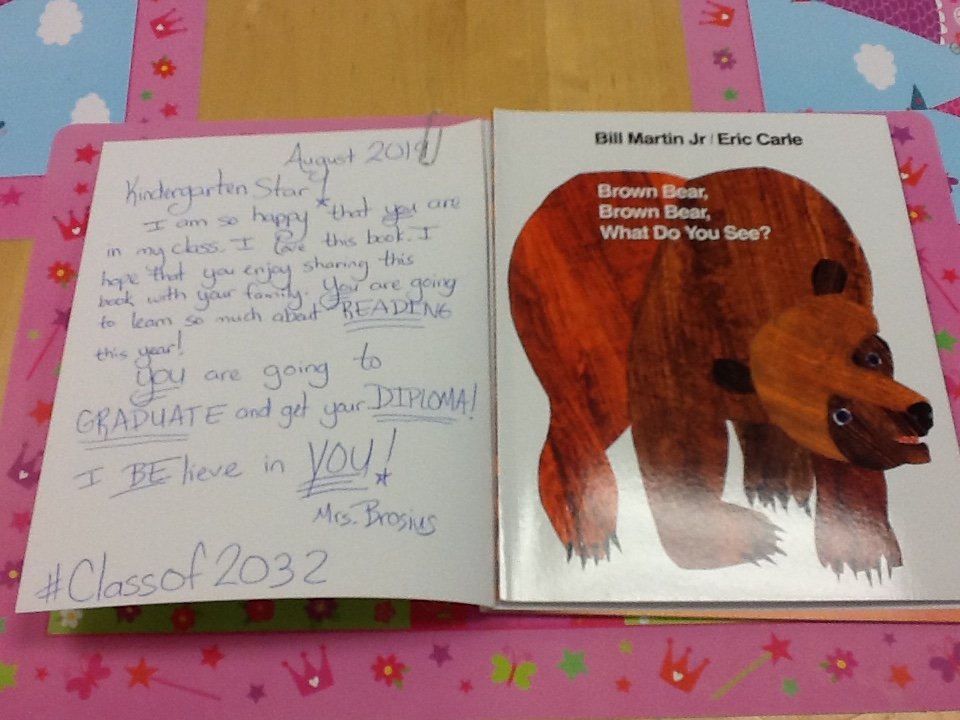 August 2019
Kindergarten Star!
I am so happy that you are
in my class. I love this book. I
hope that you enjoy sharing this
book with your family. You are going
to learn so much about READING
this year!
You are going to
GRADUATE and get your DIPLOMA!
I BElieve in YOU!
Mrs. Brosius
#Classof2032
Bill Martin Jr / Eric Carle
Brown Bear,
Brown Bear,
What Do You See?